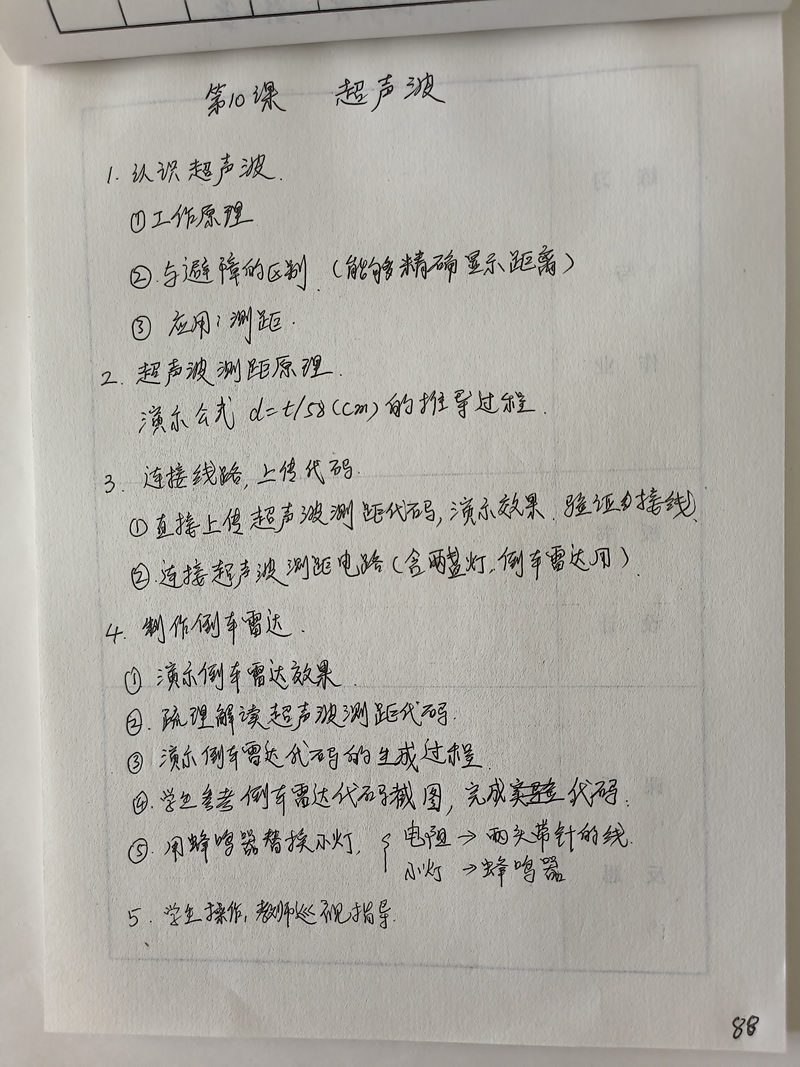 第10课 超声波
1. 认识超声波.
①工作原理
②与避障的区别.（能够精确显示距离）
③ 应用:测距.
2. 超声波测距原理.
演示公式 d=t/58(cm)的推导过程.
3. 连接线路,上传代码.
①直接上传超声波测距代码,演示效果.验证为接线.
②.连接超声波测距电路(含两盏灯.倒车雷达用).
4. 制作倒车雷达.
① 演示倒车雷达效果.
②. 疏理解读超声波测距代码.
③ 演示倒车雷达代码的生成过程.
④.学生参考倒车雷达代码截图,完成实验代码.
⑤.用蜂鸣器替换小灯, { 电阻→两头带针的线.
小灯→蜂鸣器
5. 学生操作,教师巡视指导.
88
练习与作业
板书设计
课后反思